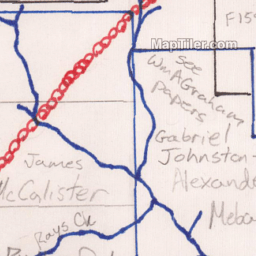 F15
MapTiler.com
see
Wm A Graham
papers
Gabriel
Johnston
Alexande
James
McCalister
Meba
Rays Ck